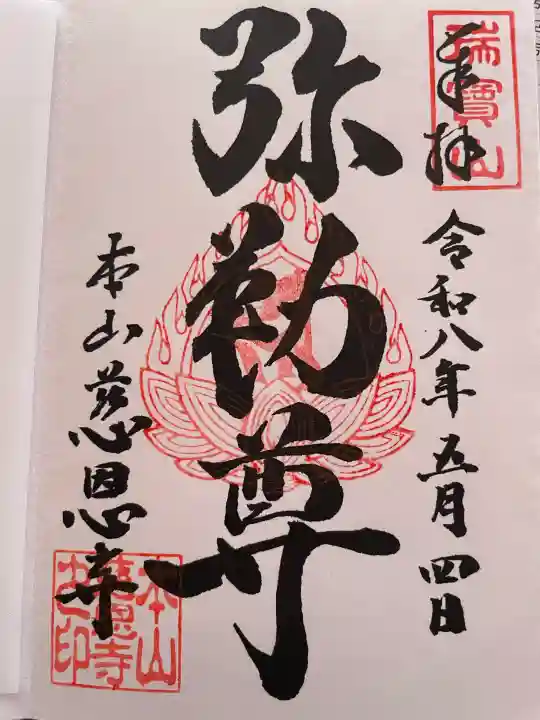 奉拝
瑞寶山
令和八年五月四日
弥勒尊
本山慈恩寺
本山慈恩寺之印